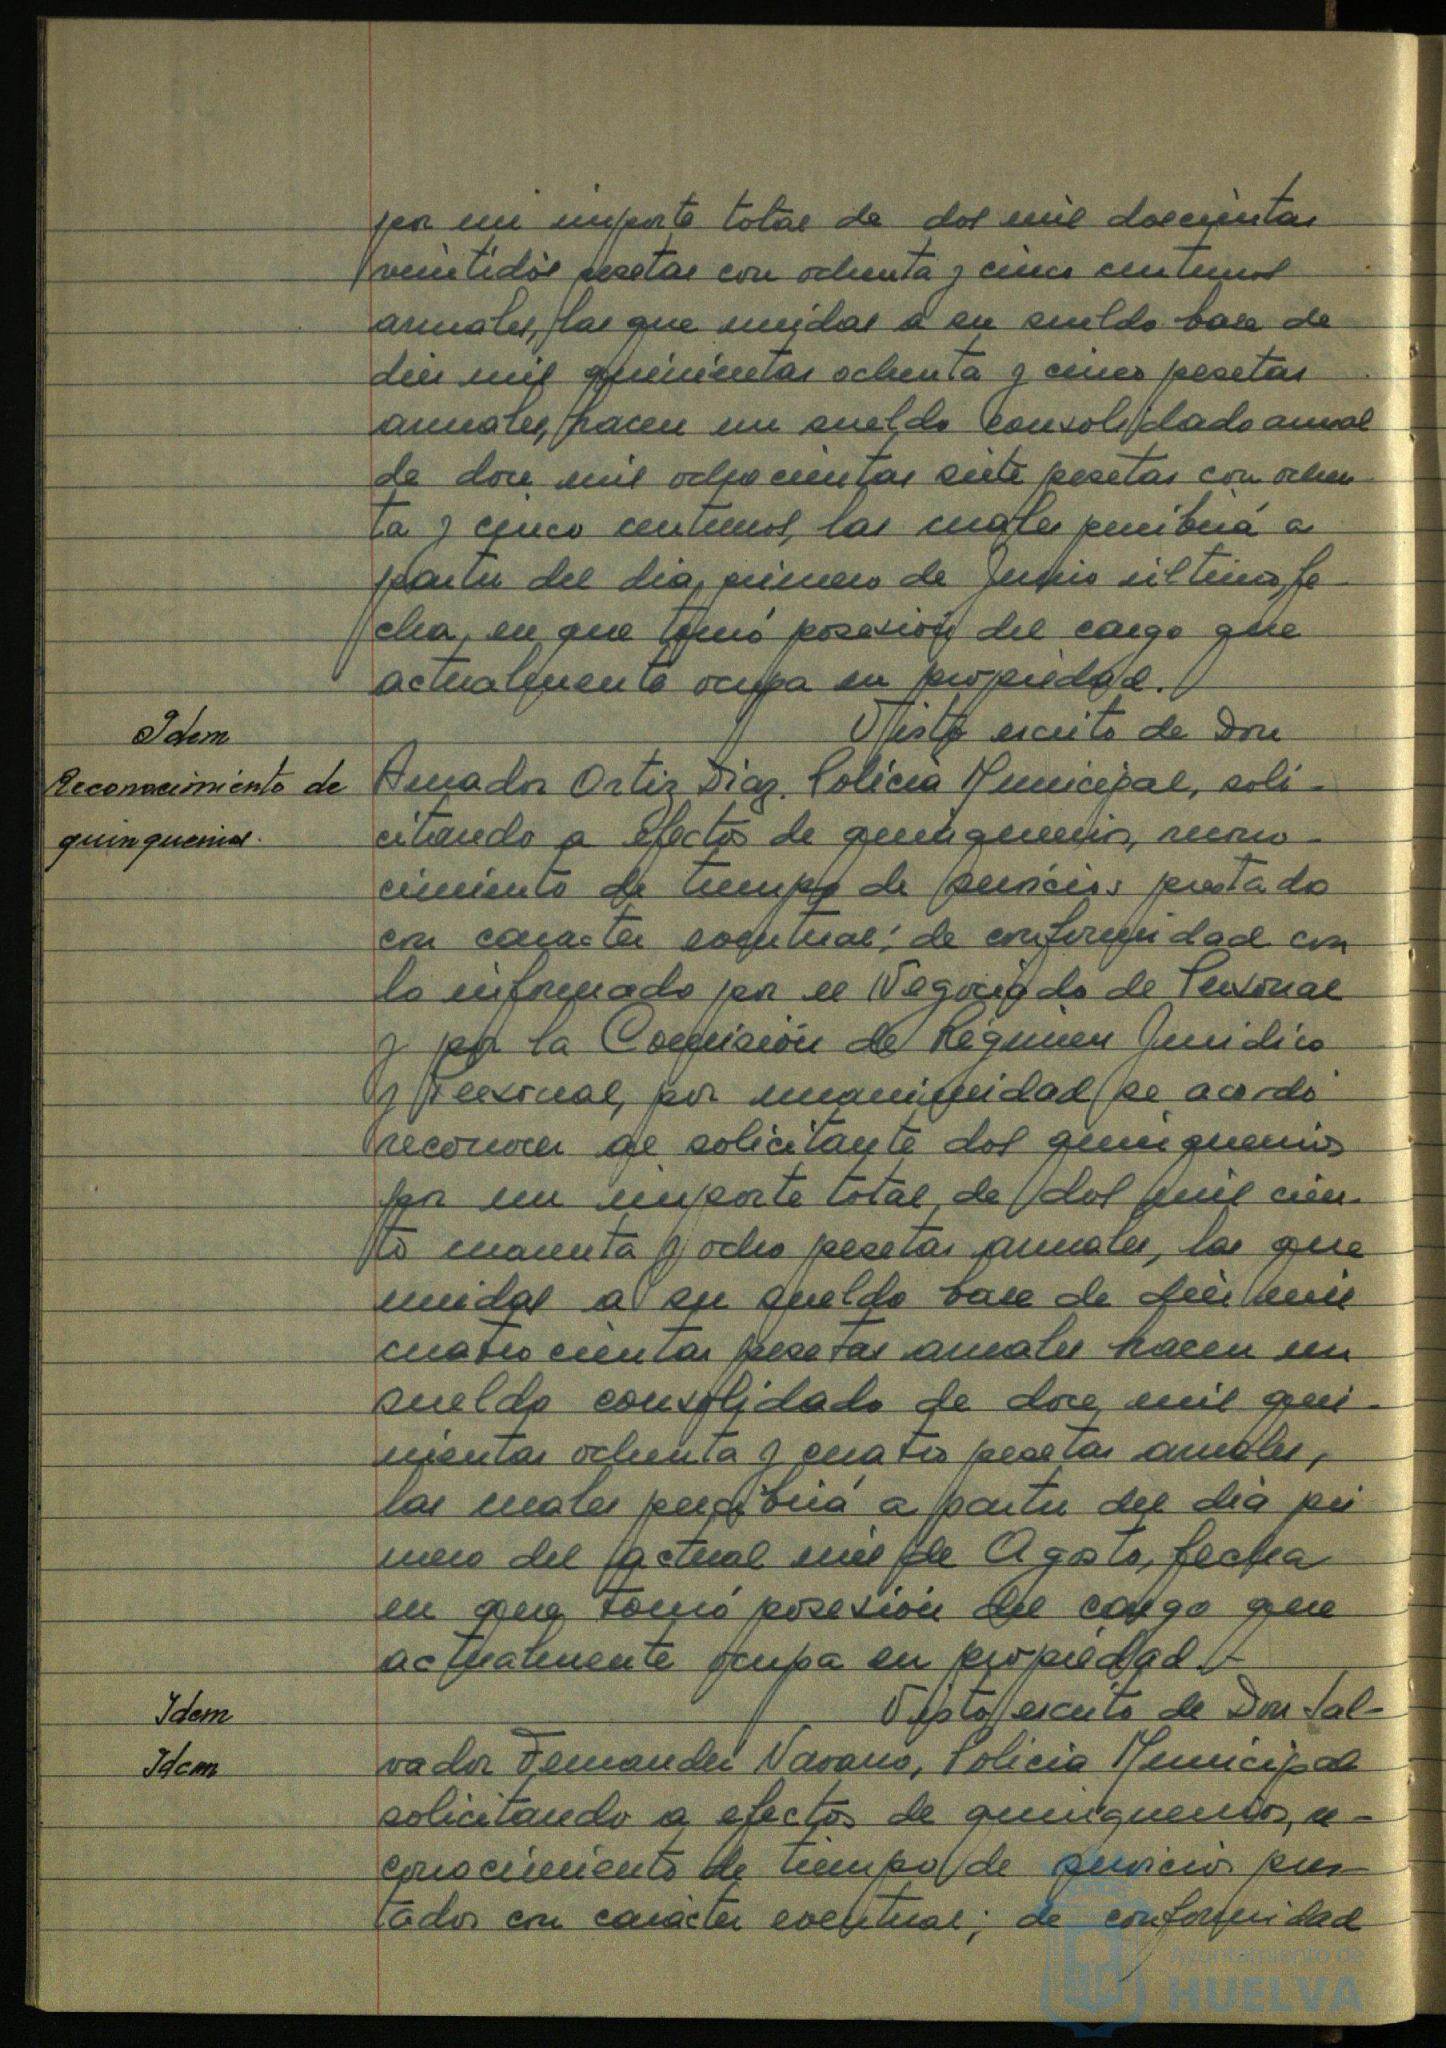 por un importe total de dos mil doscientas
veintidós pesetas con ochenta y cinco centimos
anuales, las que unidas a su sueldo base de
diez mil quinientas ochenta y cinco pesetas
anuales, hacen un sueldo consolidado anual
de doce mil ochocientas siete pesetas con ochen-
ta y cinco centimos, las cuales percibirá a
partir del dia primero de Junio ultimo, fe-
cha, en que tomó posesión del cargo que
actualmente ocupa en propiedad.
Idem
Visto escrito de Don
Reconocimiento de
quinquenios.
Amador Ortiz Diaz. Policia Municipal, soli-
citando a efectos de quinquenios, recono-
cimiento de tiempo de servicios prestado
con caracter eventual; de conformidad con
lo informado por el Negociado de Personal
y por la Comisión de Régimen Juridico
y Personal, por unanimidad se acordó
reconocer al solicitante dos quinquenios
por un importe total de dos mil cien-
to ochenta y cuatro pesetas anuales, las que
unidas a su sueldo base de diez mil
cuatrocientas pesetas anuales hacen un
sueldo consolidado de doce mil qui-
nientas ochenta y cuatro pesetas anuales,
las cuales percibirá a partir del dia pri
mero del actual mes de Agosto, fecha
en que tomó posesión del cargo que
actualmente ocupa en propiedad.-
Idem
Visto escrito de Don Sal-
Idem
vador Fernandez Navarro, Policia Municipal
solicitando a efectos de quinquenios, re-
conocimiento de tiempo de servicios pres-
tados con carácter eventual; de conformidad
Ayuntamiento de
HUELVA